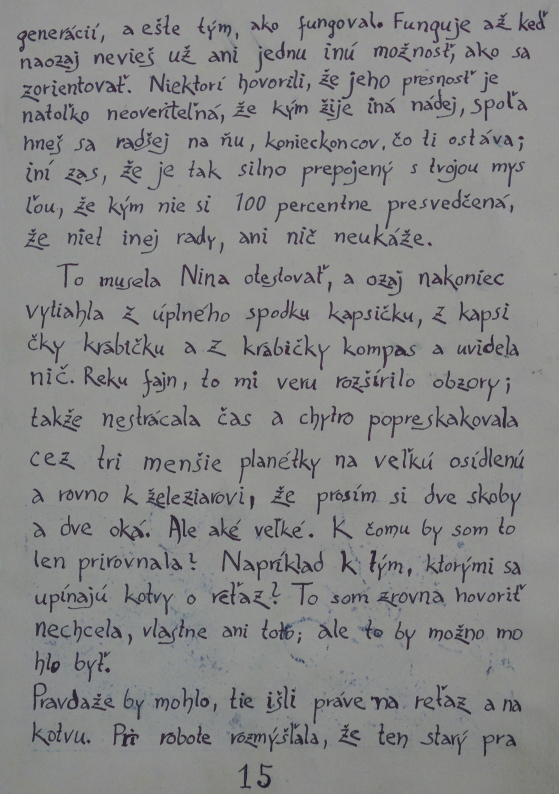 generácií, a ešte tým, ako fungoval. Funguje až keď
naozaj nevieš už ani jednu inú možnosť, ako sa
zorientovať. Niektorí hovorili, že jeho presnosť je
natoľko neoveriteľná, že kým žije iná nádej, spoľa
hneš sa radšej na ňu, konieckoncov, čo ti ostáva;
iní zas, že je tak silno prepojený s tvojou mys
ľou, že kým nie si 100 percentne presvedčená,
že niet inej rady, ani nič neukáže.
To musela Nina otestovať, a ozaj nakoniec
vytiahla z úplného spodku kapsičku, z kapsi
čky krabičku a z krabičky kompas a uvidela
nič. Reku fajn, to mi veru rozšírilo obzory;
takže nestrácala čas a chytro popreskakovala
cez tri menšie planétky na veľkú osídlenú
a rovno k železiarovi, že prosím si dve skoby
a dve oká. Ale aké veľké. K čomu by som to
len prirovnala? Napríklad k tým, ktorými sa
upínajú kotvy o reťaz? To som zrovna hovoriť
nechcela, vlastne ani toto; ale to by možno mo
hlo byť.
Pravdaže by mohlo, tie išli práve na reťaz a na
kotvu. Pri robote rozmýšľala, že ten starý pra
15